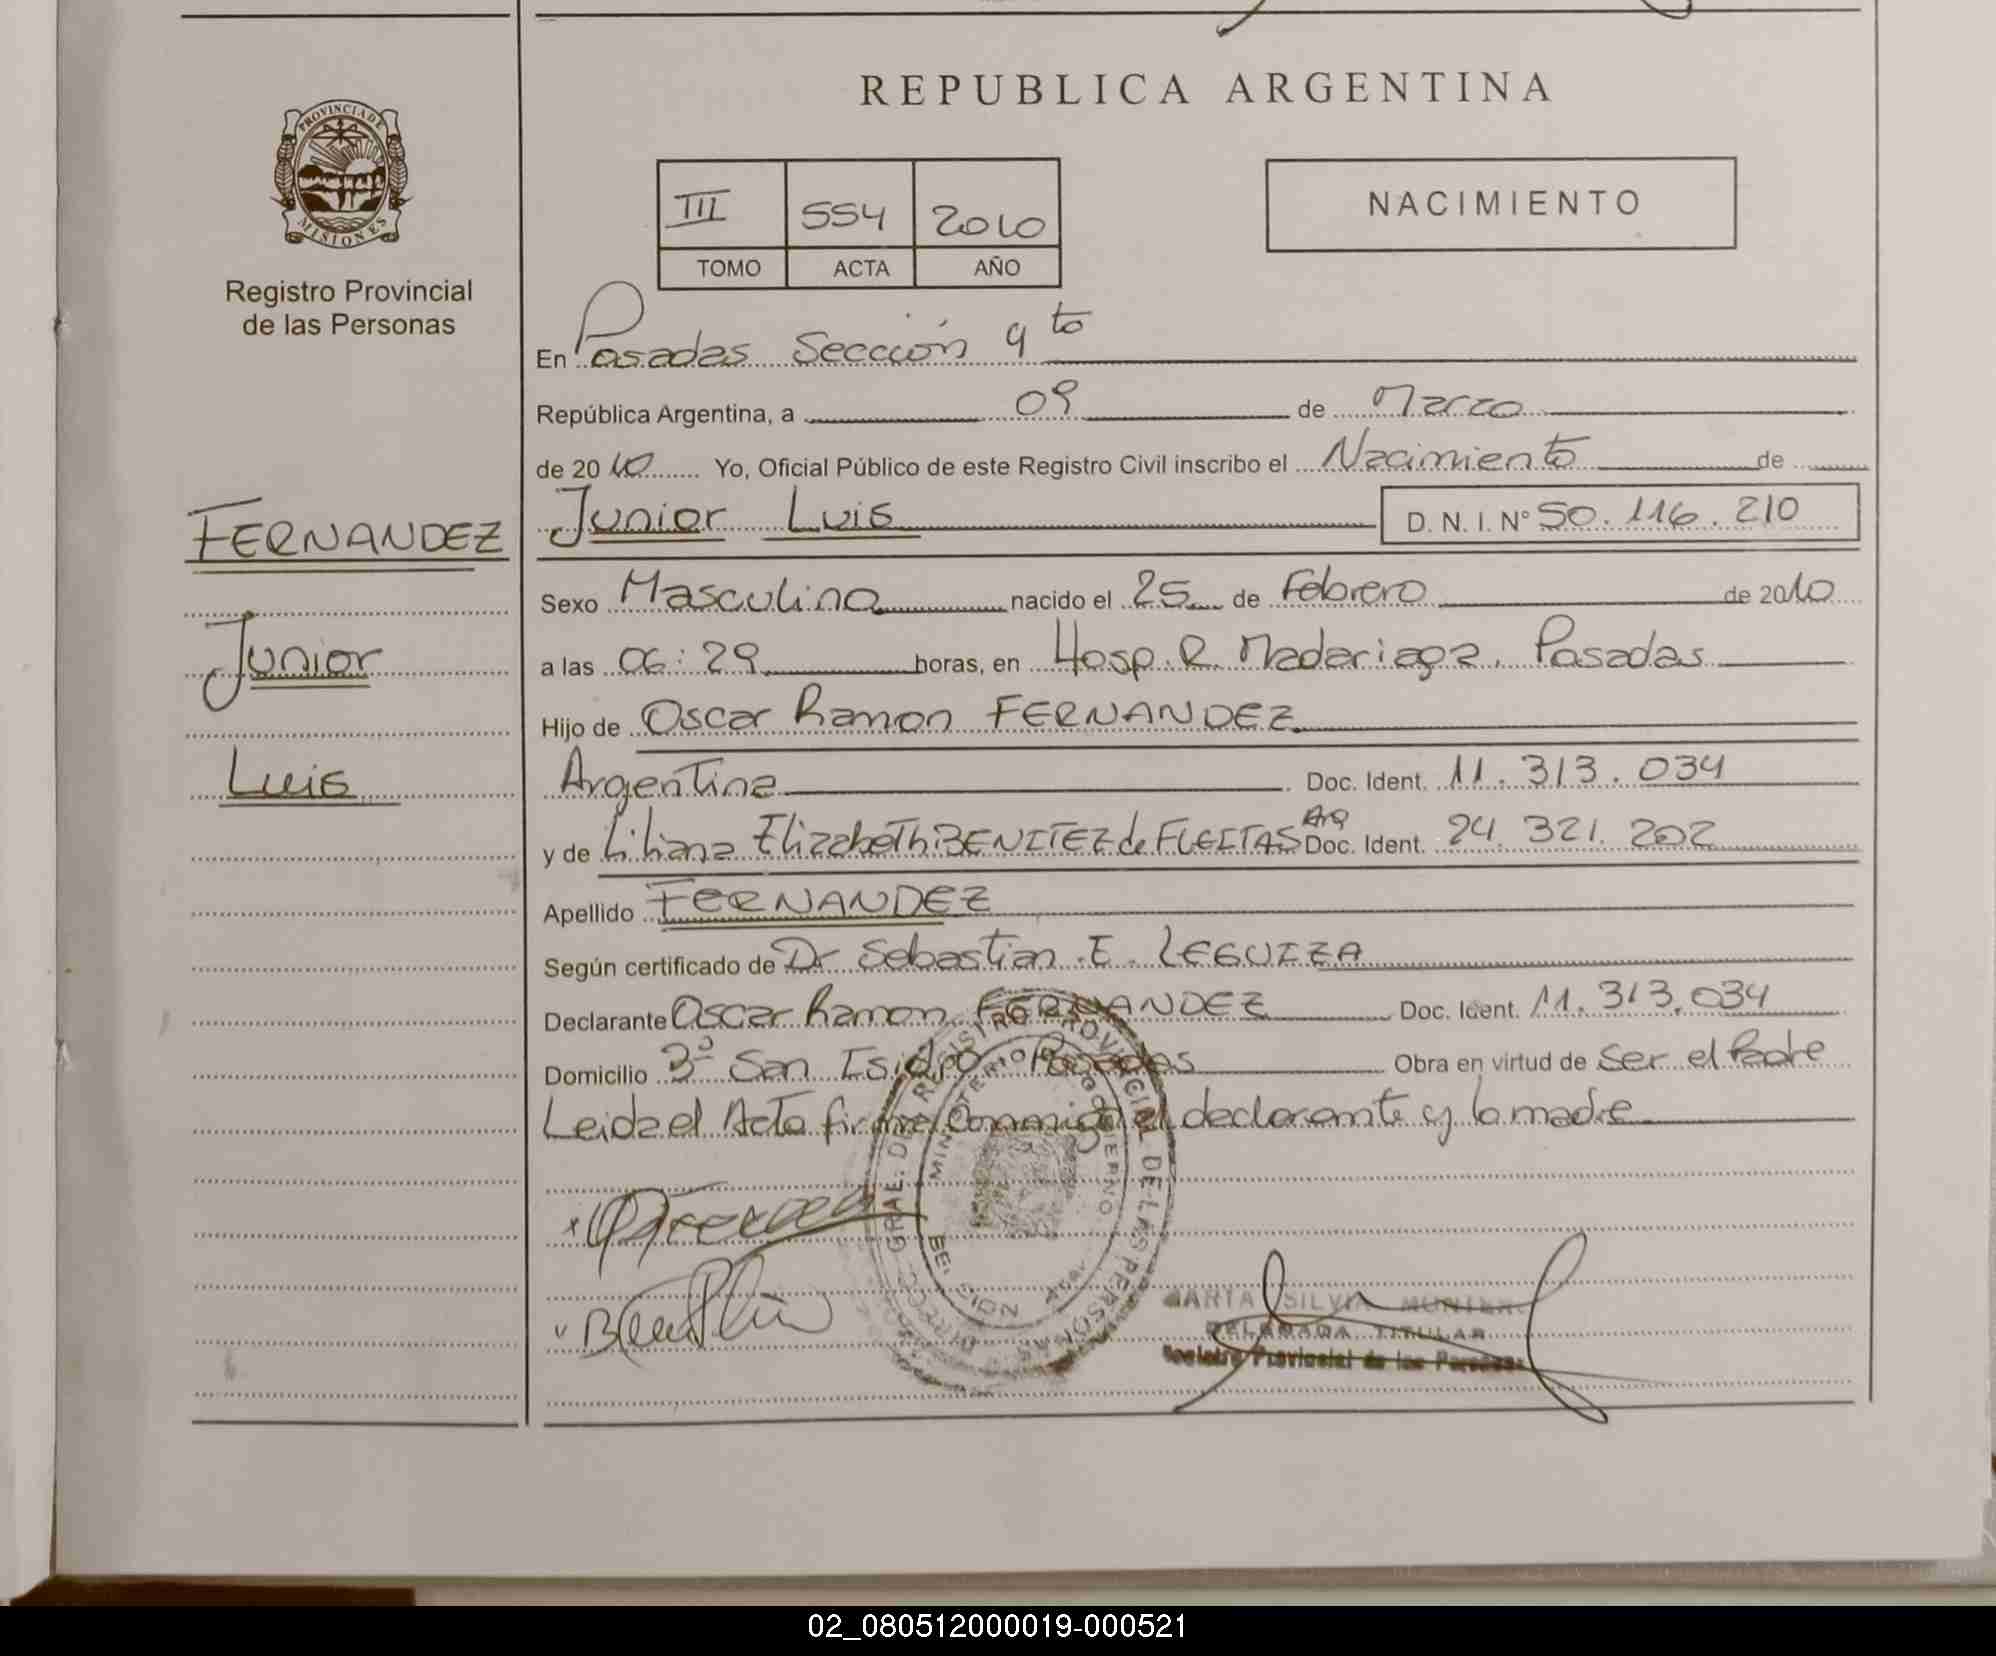 PROVINCIA DE
MISIONES
Registro Provincial
de las Personas
FERNANDEZ
Junior
Luis
REPUBLICA ARGENTINA
III 554 2010
TOMO ACTA AÑO
NACIMIENTO
En Posadas Sección 9 to
República Argentina, a 09 de Marzo
de 2010 Yo, Oficial Público de este Registro Civil inscribo el Nacimiento de
Junior Luis D. N. I. Nº 50.116.210
Sexo Masculino nacido el 25 de Febrero de 2010
a las 06:29 horas, en Hosp. R. Madariaga. Posadas
Hijo de Oscar Ramon FERNANDEZ
Argentina Doc. Ident. 11.313.034
y de Liliana Elizabeth BENITEZ de FLEITAS Arg Doc. Ident. 24.321.202
Apellido FERNANDEZ
Según certificado de Dr Sebastian E. LEGUIZA
Declarante Oscar Ramon FERNANDEZ Doc. Ident. 11.313.034
Domicilio San Isidro Posadas Obra en virtud de Ser el Padre
Leida el Acta firma conmigo el declarante y la madre
SILVIA
DELEGADA TITULAR
Registro Provincial de las Personas
02_080512000019-000521